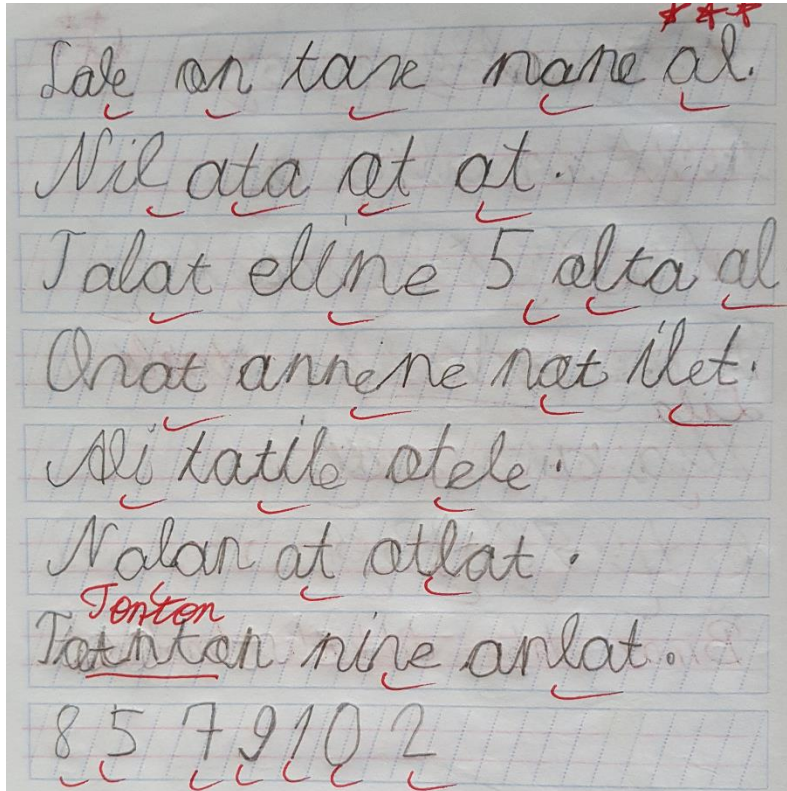 Lale on tane nane al.
Nil ata ot at.
Talat eline 5 olta al
Onat annene not ilet.
Ali tatile otele.
Nalan at otlat.
Tonton
nine anlat.
8 5 7 9 1 0 2